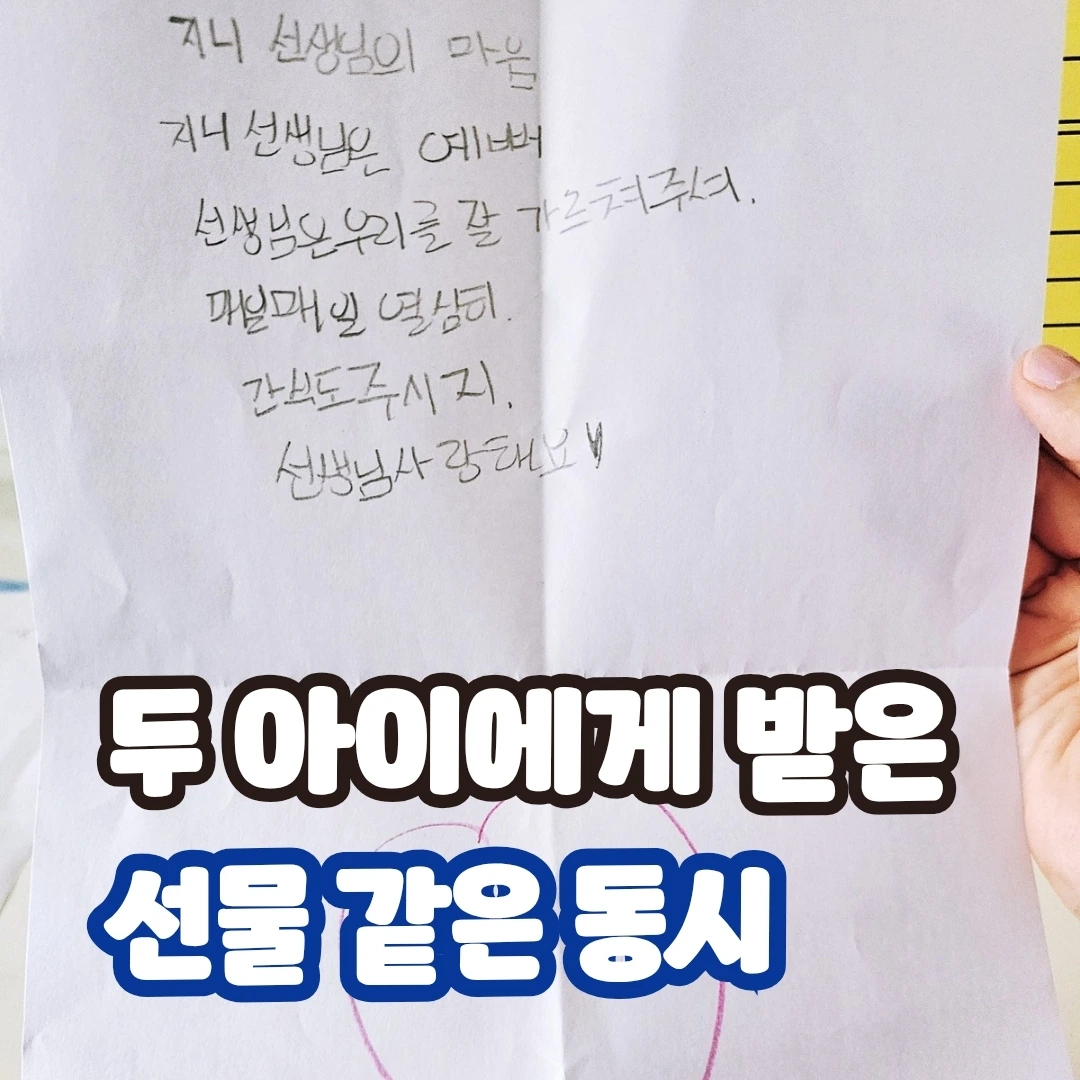 지니 선생님의 마음
지니 선생님은 예뻐
선생님은우리를 잘 가르쳐주셔.
매일매일 열심히.
간식도주시지.
선생님사랑해요♥
두 아이에게 받은
선물 같은 동시